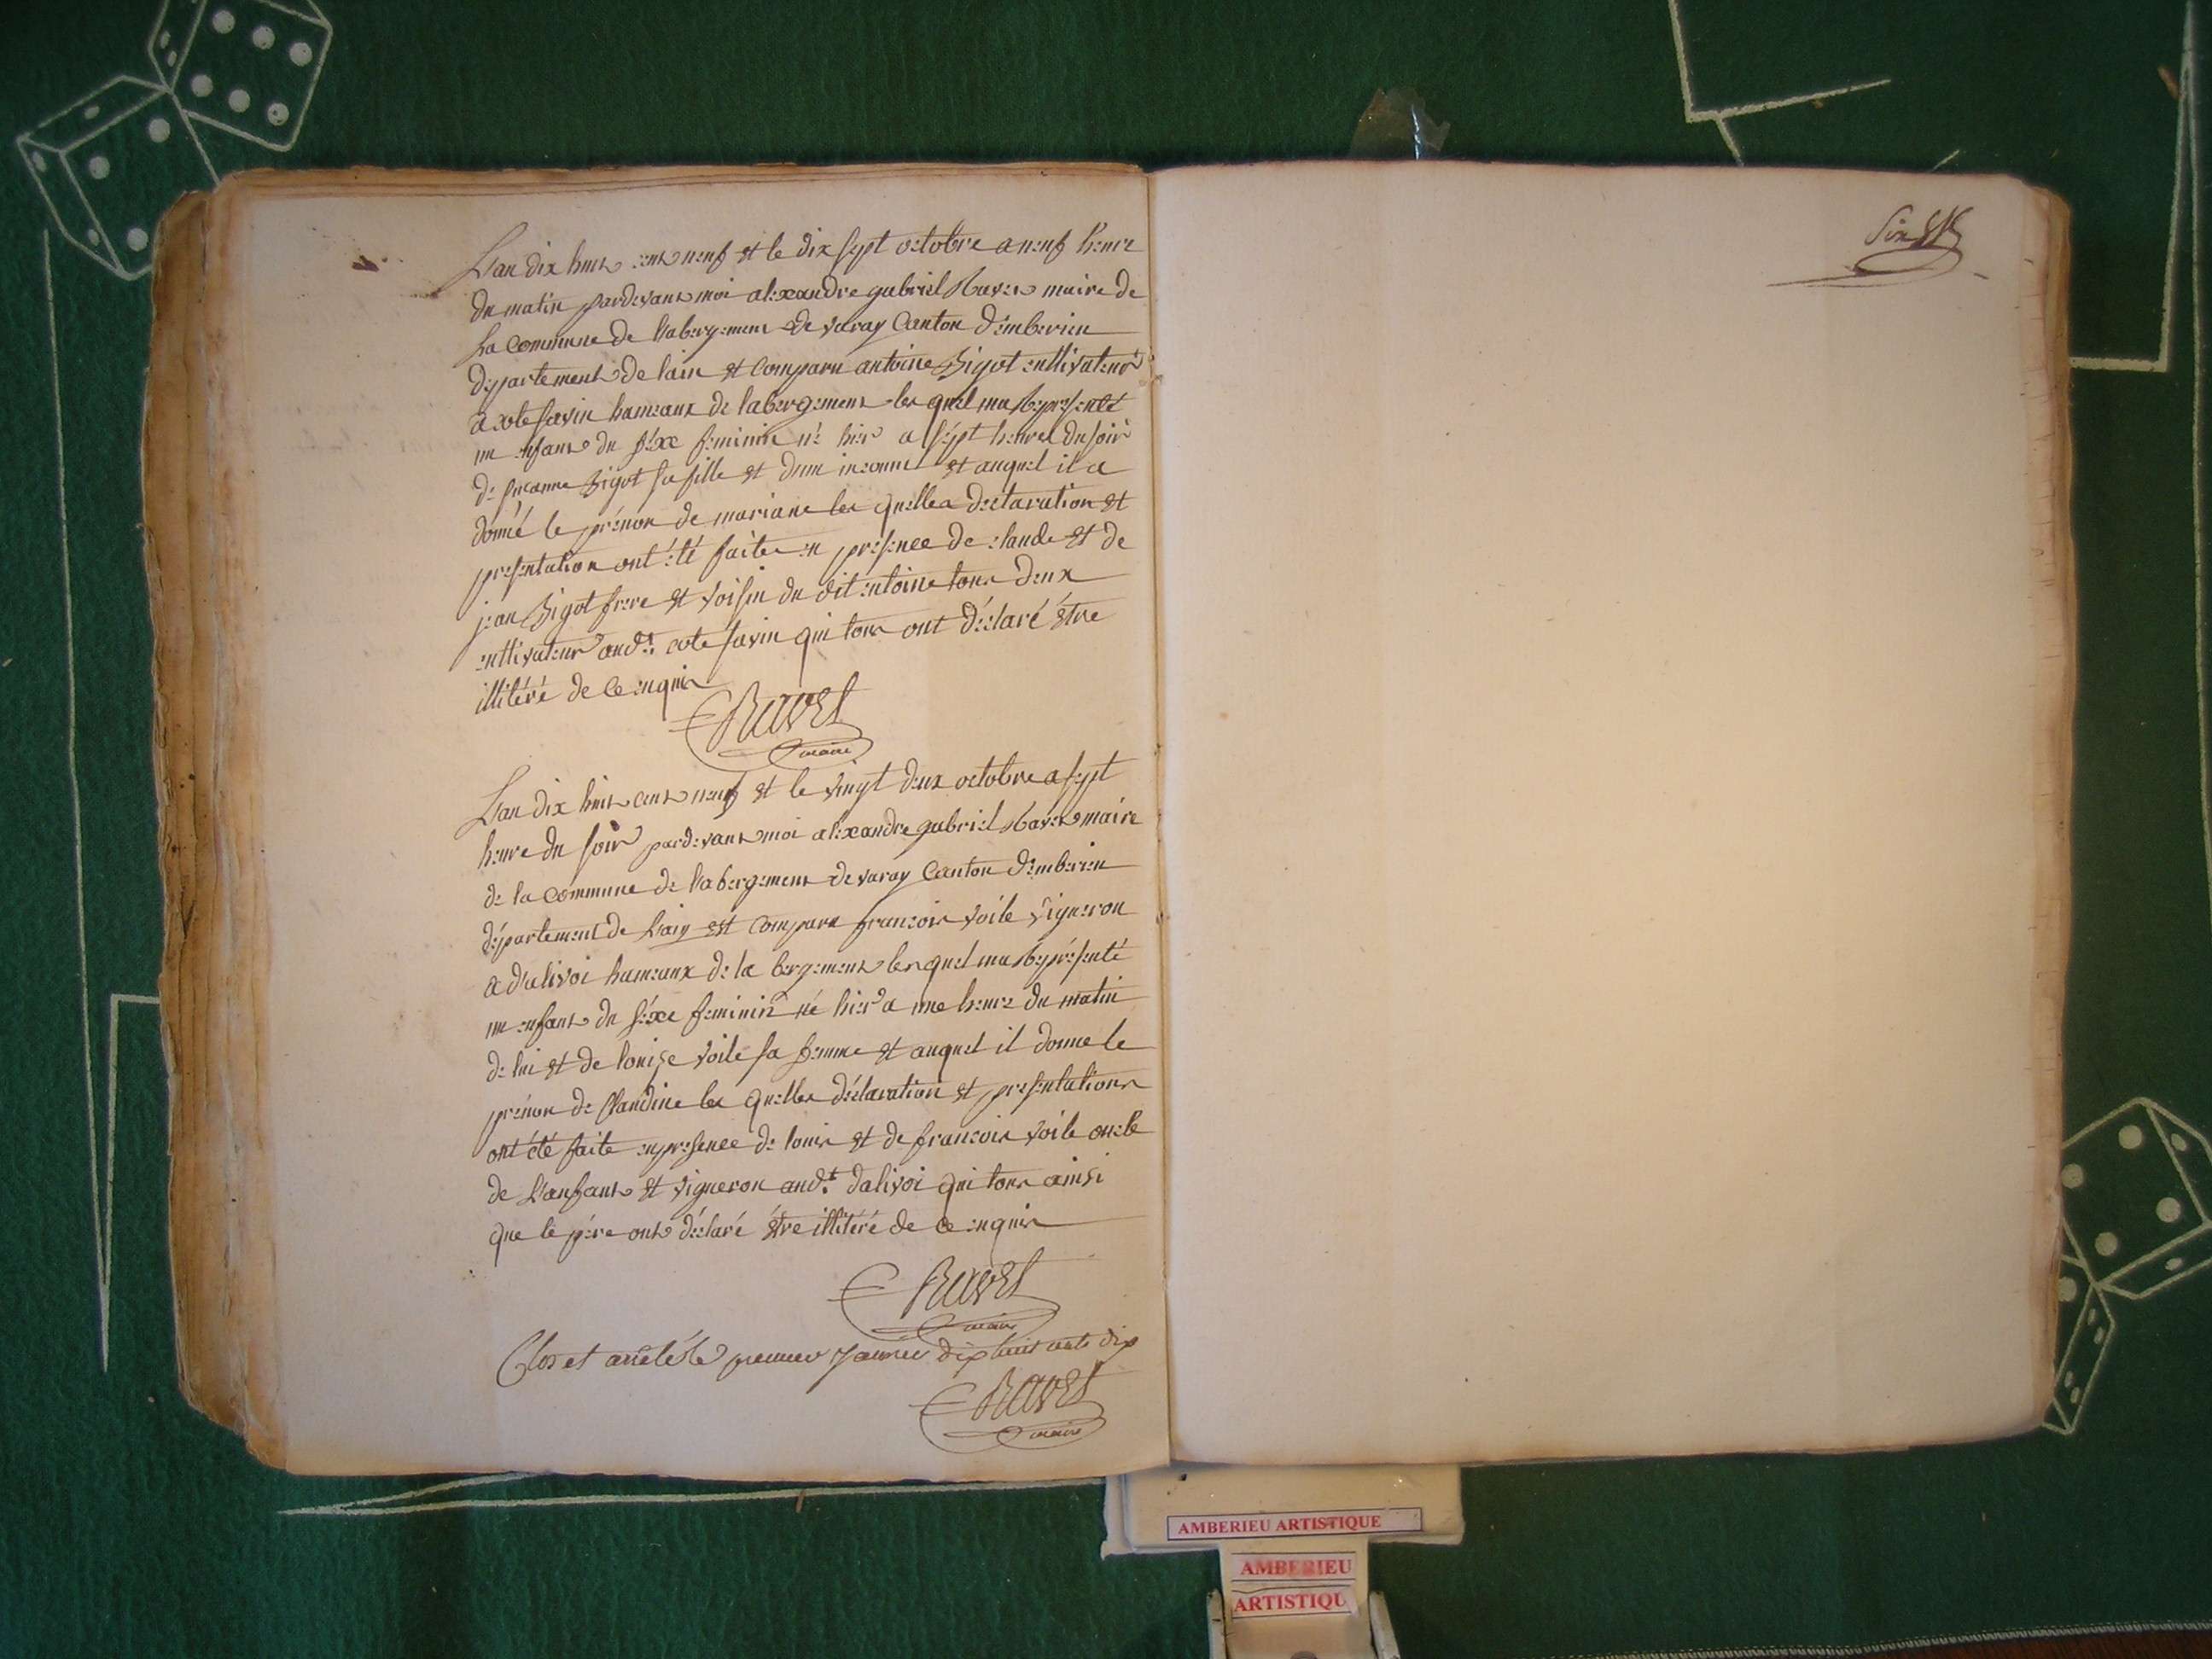 L'an dix huit cent neuf et le dix sept octobre a neuf heure
du matin pardevant moi alexandre gabriel Ravet maire de
La commune de l'abergement de varay Canton d'emberieu
département de lain et comparu antoine Bigot cultivateur
a cote savin hameaux de labergement lesquel ma Représenté
un enfant du séxe feminin né hier a sépt heures du soir
de suzanne Bigot sa fille et d'un inconnu et auquel il a
donné le prénon de mariane les quelles declaration et
presentation ont été faites en presence de claude et de
jean Bigot frere et voisin du dit antoine tous deux
cultivateur aud.t cote savin qui tous ont déclaré être
illitéré de ce enquis
Ravet
maire
L'an dix huit cent neuf et le vingt deux octobre a sept
heure du soir pardevant moi alexandre gabriel Ravet maire
de la commune de l'abergement de varay Canton d'emberieu
département de L'ain est comparu francois voile vigneron
a d'alivoi hameaux de la bergement lesquel ma Représenté
un enfant du séxe feminin né hier a une heure du matin
de lui et de louise voile sa femme et auquel il donne le
prénon de Claudine les quelles déclaration et presentations
ont été faite en presence de louis et de francois voile oncle
de L'enfant et vigneron aud.t dalivoi qui tous ainsi
que le pére ont déclaré être illitéré de ce enquis
Ravet
maire
Clos et arrêté le premier Janvier dix huit cents dix
Ravet
maire
Six
AMBERIEU ARTISTIQUE
AMBERIEU
ARTISTIQU